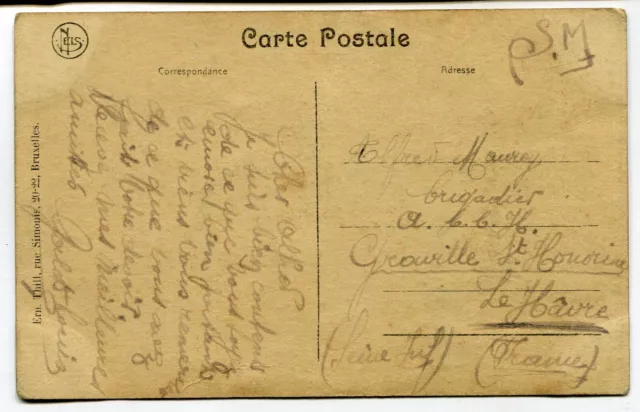 NELS
Carte Postale
S.M
Correspondance
Adresse
Cher Alfred
Je suis bien content
de ce que vous
encore bien
et viens vous remercier
de ce que vous avez
fait votre devoir
Recevez mes meilleures
amitiés
Louis
Alfred Maurey
brigadier
A. C. C. H.
Graville St. Honorine
Le Hâvre
(Seine Inf) (France)
Ern. Thill, rue Simonis, 20-22, Bruxelles.